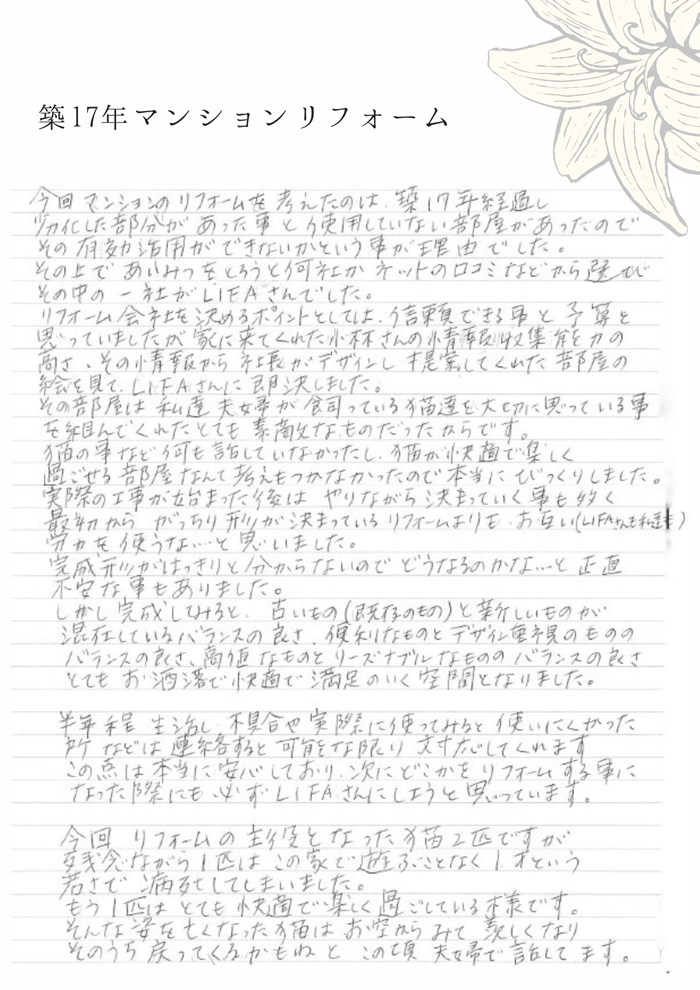 築17年マンションリフォーム
今回 マンションのリフォームを考えたのは、築17年経過し
劣化した部分があった事と使用していない部屋があったので
その有効活用ができないかという事が理由でした。
その上であいみつをとろうと何社かネットの口コミなどから選び
その中の一社がLIFAさんでした。
リフォーム会社を決めるポイントとしては、信頼できる事と予算と
思っていましたが家に来てくれた小林さんの情報収集能力の
高さ、その情報から社長がデザインし提案してくれた部屋の
絵を見て、LIFAさんに即決しました。
その部屋は私達夫婦が飼っている猫達を大切に思っている事
を組んでくれたとても素敵なものだったからです。
猫の事など何も話していなかったし、猫が快適で楽しく
過ごせる部屋なんて考えもつかなかったので本当にびっくりしました。
実際の工事が始まった後は やりながら決まっていく事も多く
最初から がっちり形が決まっているリフォームよりも、お互い(LIFAさんも私達も)
労力を使うな…と思いました。
完成形がはっきりと分からないのでどうなるのかな…と正直
不安な事もありました。
しかし完成してみると、古いもの(既存のもの)と新しいものが
混在しているバランスの良さ、便利なものとデザイン重視のものの
バランスの良さ、高値なものとリーズナブルなもののバランスの良さ
とてもお洒落で快適で満足のいく空間となりました。
半年程生活し、不具合や実際に使ってみると使いにくかった
所などは連絡すると可能な限り対応してくれます
この点は本当に安心しており、次にどこかをリフォームする事に
なった際にも必ずLIFAさんにしようと思っています。
今回 リフォームの主役となった猫2匹ですが
残念ながら1匹はこの家で遊ぶことなく1才という
若さで病死してしまいました。
もう1匹はとても快適で楽しく過ごしている様です。
そんな姿を亡くなった猫はお空からみて羨しくなり
そのうち戻ってくるかもねと この頃 夫婦で話してます。